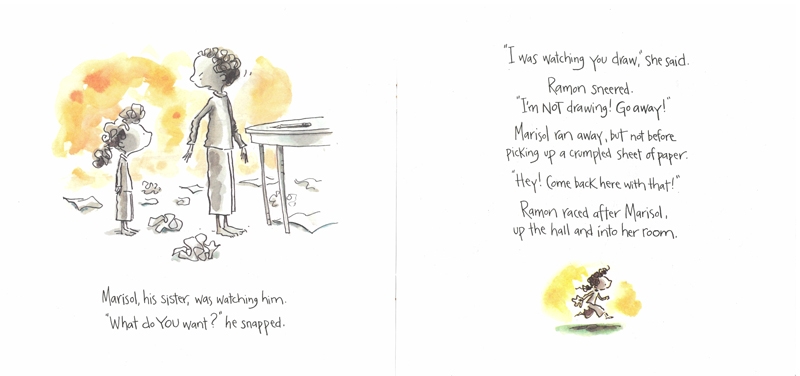 Marisol, his sister, was watching him.
"What do YOU want?" he snapped.
"I was watching you draw," she said.
Ramon sneered.
"I'm NOT drawing! Go away!"
Marisol ran away, but not before
picking up a crumpled sheet of paper.
"Hey! Come back here with that!"
Ramon raced after Marisol,
up the hall and into her room.